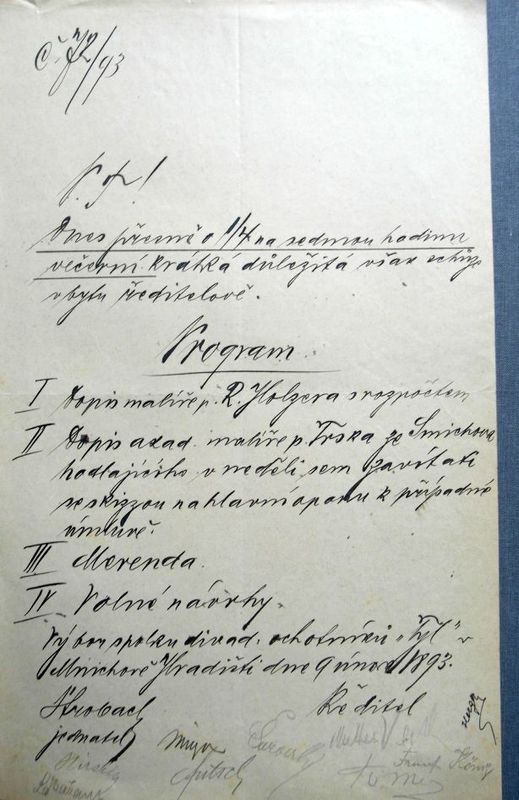 Č. 72/93
P. T.!
Dnes přesně o 1/4 na sedmou hodinu
večerní krátká důležitá však schůze
v bytu ředitelově.
Program.
I Dopis malíře p. R. Holzera s rozpočtem
II Dopis akad. malíře p. Trska ze Smíchova
hodlajícího v neděli sem zavítati
se skizzou na hlavní oponu k případné
úmluvě.
III Merenda.
IV Volné návrhy.
Výbor spolku divad. ochotníků „Tyl" v
Mnichově Hradišti dne 9 února 1893.
Strobach Ředitel
jednatel